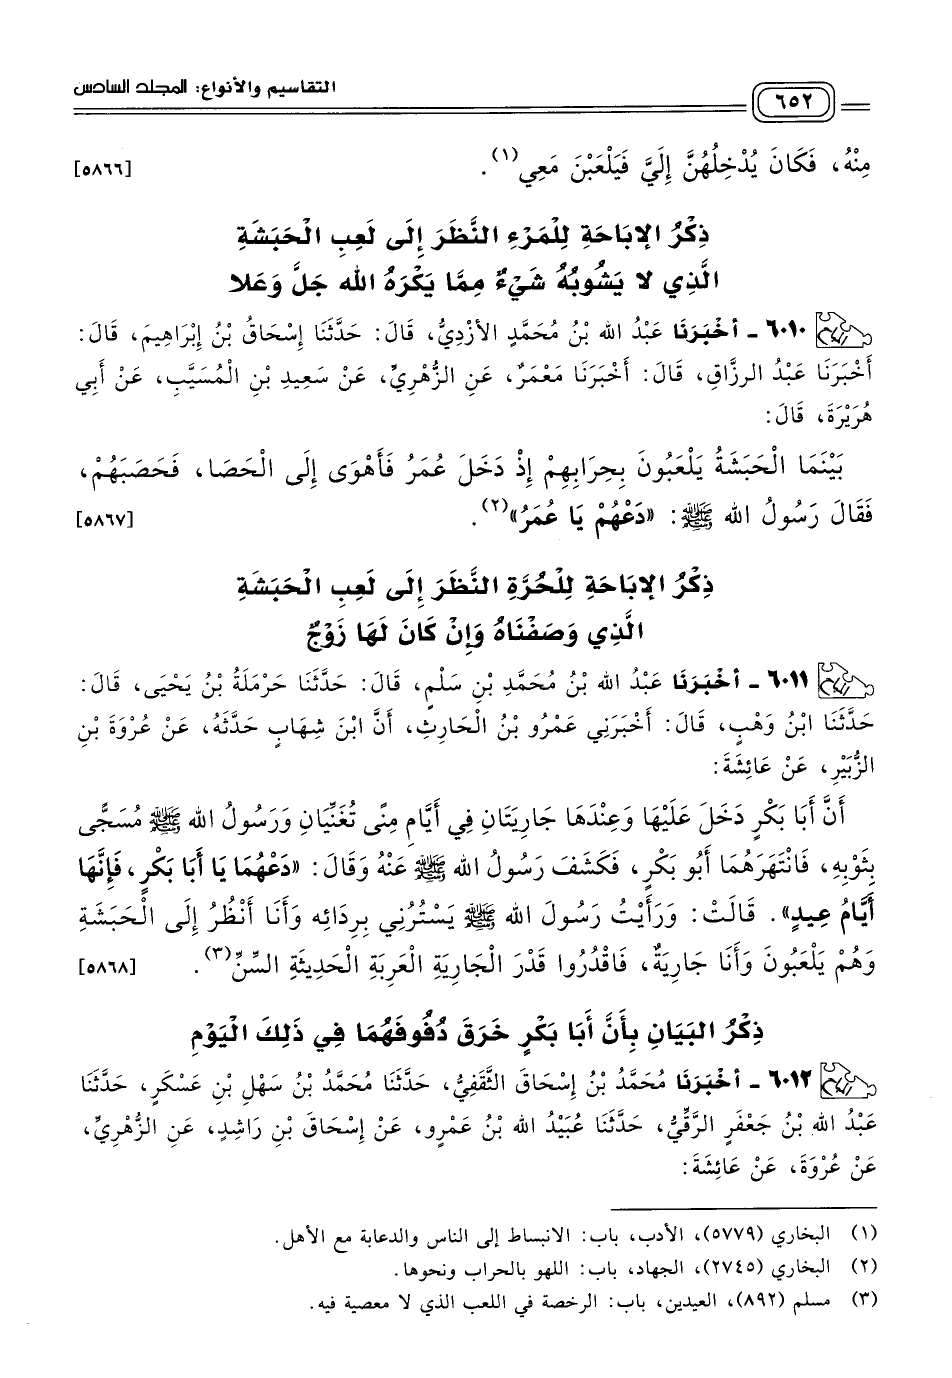 التقاسيم والأنواع: المجلد السادس
٦٥٢
مِنْهُ، فَكَانَ يُدْخِلُهُنَّ إِلَيَّ فَيَلْعَبْنَ مَعِي(١). [٥٨٦٦]
ذِكْرُ الإبَاحَةِ لِلْمَرْءِ النَّظَرَ إِلَى لَعِبِ الْحَبَشَةِ
الَّذِي لا يَشُوبُهُ شَيْءٌ مِمَّا يَكْرَهُ الله جَلَّ وَعَلا
٦٠١٠ - أخْبَرَنَا عَبْدُ الله بْنُ مُحَمَّدٍ الأزْدِيُّ، قَالَ: حَدَّثَنَا إِسْحَاقُ بْنُ إِبْرَاهِيمَ، قَالَ:
أَخْبَرَنَا عَبْدُ الرزَّاقِ، قَالَ: أَخْبَرَنَا مَعْمَرٌ، عَنِ الزُّهْرِيِّ، عَنْ سَعِيدِ بْنِ الْمُسَيَّبِ، عَنْ أَبِي
هُرَيْرَةَ، قَالَ:
بَيْنَمَا الْحَبَشَةُ يَلْعَبُونَ بِحِرَابِهِمْ إِذْ دَخَلَ عُمَرُ فَأَهْوَى إِلَى الْحَصَا، فَحَصَبَهُمْ،
فَقَالَ رَسُولُ الله ﷺ: «دَعْهُمْ يَا عُمَرُ»(٢). [٥٨٦٧]
ذِكْرُ الإبَاحَةِ لِلْحُرَّةِ النَّظَرَ إِلَى لَعِبِ الْحَبَشَةِ
الَّذِي وَصَفْنَاهُ وَإِنْ كَانَ لَهَا زَوْجٌ
٦٠١١ - أخْبَرَنَا عَبْدُ الله بْنُ مُحَمَّدِ بْنِ سَلْمٍ، قَالَ: حَدَّثَنَا حَرْمَلَةُ بْنُ يَحْيَى، قَالَ:
حَدَّثَنَا ابْنُ وَهْبٍ، قَالَ: أَخْبَرَنِي عَمْرُو بْنُ الْحَارِثِ، أَنَّ ابْنَ شِهَابٍ حَدَّثَهُ، عَنْ عُرْوَةَ بْنِ
الزُّبَيْرِ، عَنْ عَائِشَةَ:
أَنَّ أَبَا بَكْرٍ دَخَلَ عَلَيْهَا وَعِنْدَهَا جَارِيَتَانِ فِي أَيَّامِ مِنًى تُغَنِّيَانِ وَرَسُولُ الله ﷺ مُسَجًّى
بِثَوْبِهِ، فَانْتَهَرَهُمَا أَبُو بَكْرٍ، فَكَشَفَ رَسُولُ الله ﷺ عَنْهُ وَقَالَ: «دَعْهُمَا يَا أَبَا بَكْرٍ، فَإِنَّهَا
أَيَّامُ عِيدٍ». قَالَتْ: وَرَأَيْتُ رَسُولَ الله ﷺ يَسْتُرُنِي بِرِدَائِه وَأَنَا أَنْظُرُ إِلَى الْحَبَشَةِ
وَهُمْ يَلْعَبُونَ وَأَنَا جَارِيَةٌ، فَاقْدُرُوا قَدْرَ الْجَارِيَةِ الْعَرِبَةِ الْحَدِيثَةِ السِّنِّ(٣). [٥٨٦٨]
ذِكْرُ البَيَانِ بِأَنَّ أَبَا بَكْرٍ خَرَقَ دُفُوفَهُمَا فِي ذَلِكَ الْيَوْمِ
٦٠١٢ - أخْبَرَنَا مُحَمَّدُ بْنُ إِسْحَاقَ الثَّقَفِيُّ، حَدَّثَنَا مُحَمَّدُ بْنُ سَهْلِ بْنِ عَسْكَرٍ، حَدَّثَنَا
عَبْدُ الله بْنُ جَعْفَرٍ الرَّقِّيُّ، حَدَّثَنَا عُبَيْدُ الله بْنُ عَمْرٍو، عَنْ إِسْحَاقَ بْنِ رَاشِدٍ، عَنِ الزُّهْرِيِّ،
عَنْ عُرْوَةَ، عَنْ عَائِشَةَ:
(١) البخاري (٥٧٧٩)، الأدب، باب: الانبساط إلى الناس والدعابة مع الأهل.
(٢) البخاري (٢٧٤٥)، الجهاد، باب: اللهو بالحراب ونحوها.
(٣) مسلم (٨٩٢)، العيدين، باب: الرخصة في اللعب الذي لا معصية فيه.